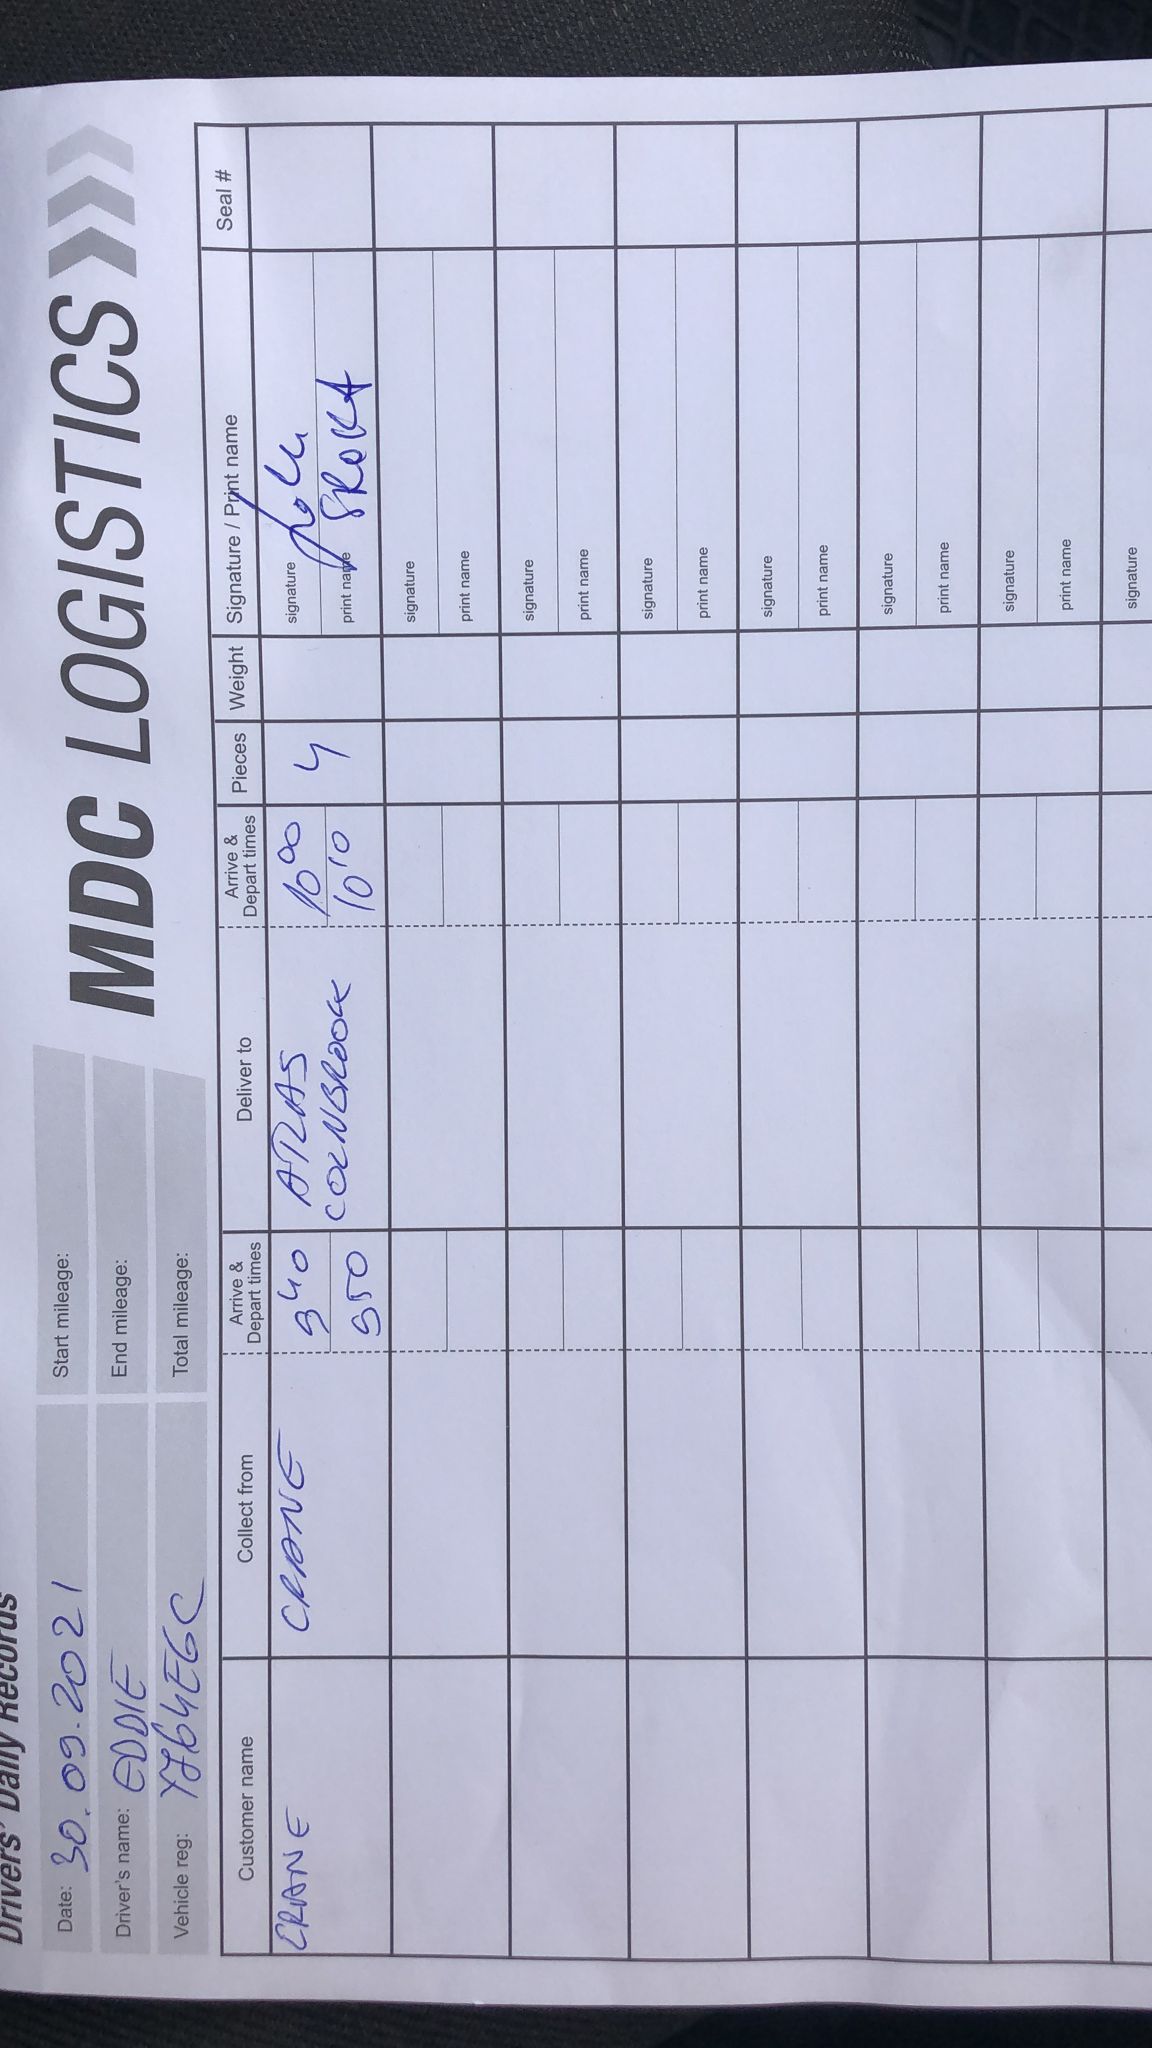 Drivers' Daily Records
MDC LOGISTICS
Date: 30.09.2021
Start mileage:
Driver's name: EDDIE
End mileage:
Vehicle reg: YJ64EGC
Total mileage:
Customer name
Collect from
Arrive &
Depart times
Deliver to
Arrive &
Depart times
Pieces
Weight
Signature / Print name
Seal #
CRANE
CRANE
940
950
ATLAS
COLNBROOK
10 00
10 10
4
signature
print name SROKA
signature
print name
signature
print name
signature
print name
signature
print name
signature
print name
signature
print name
signature